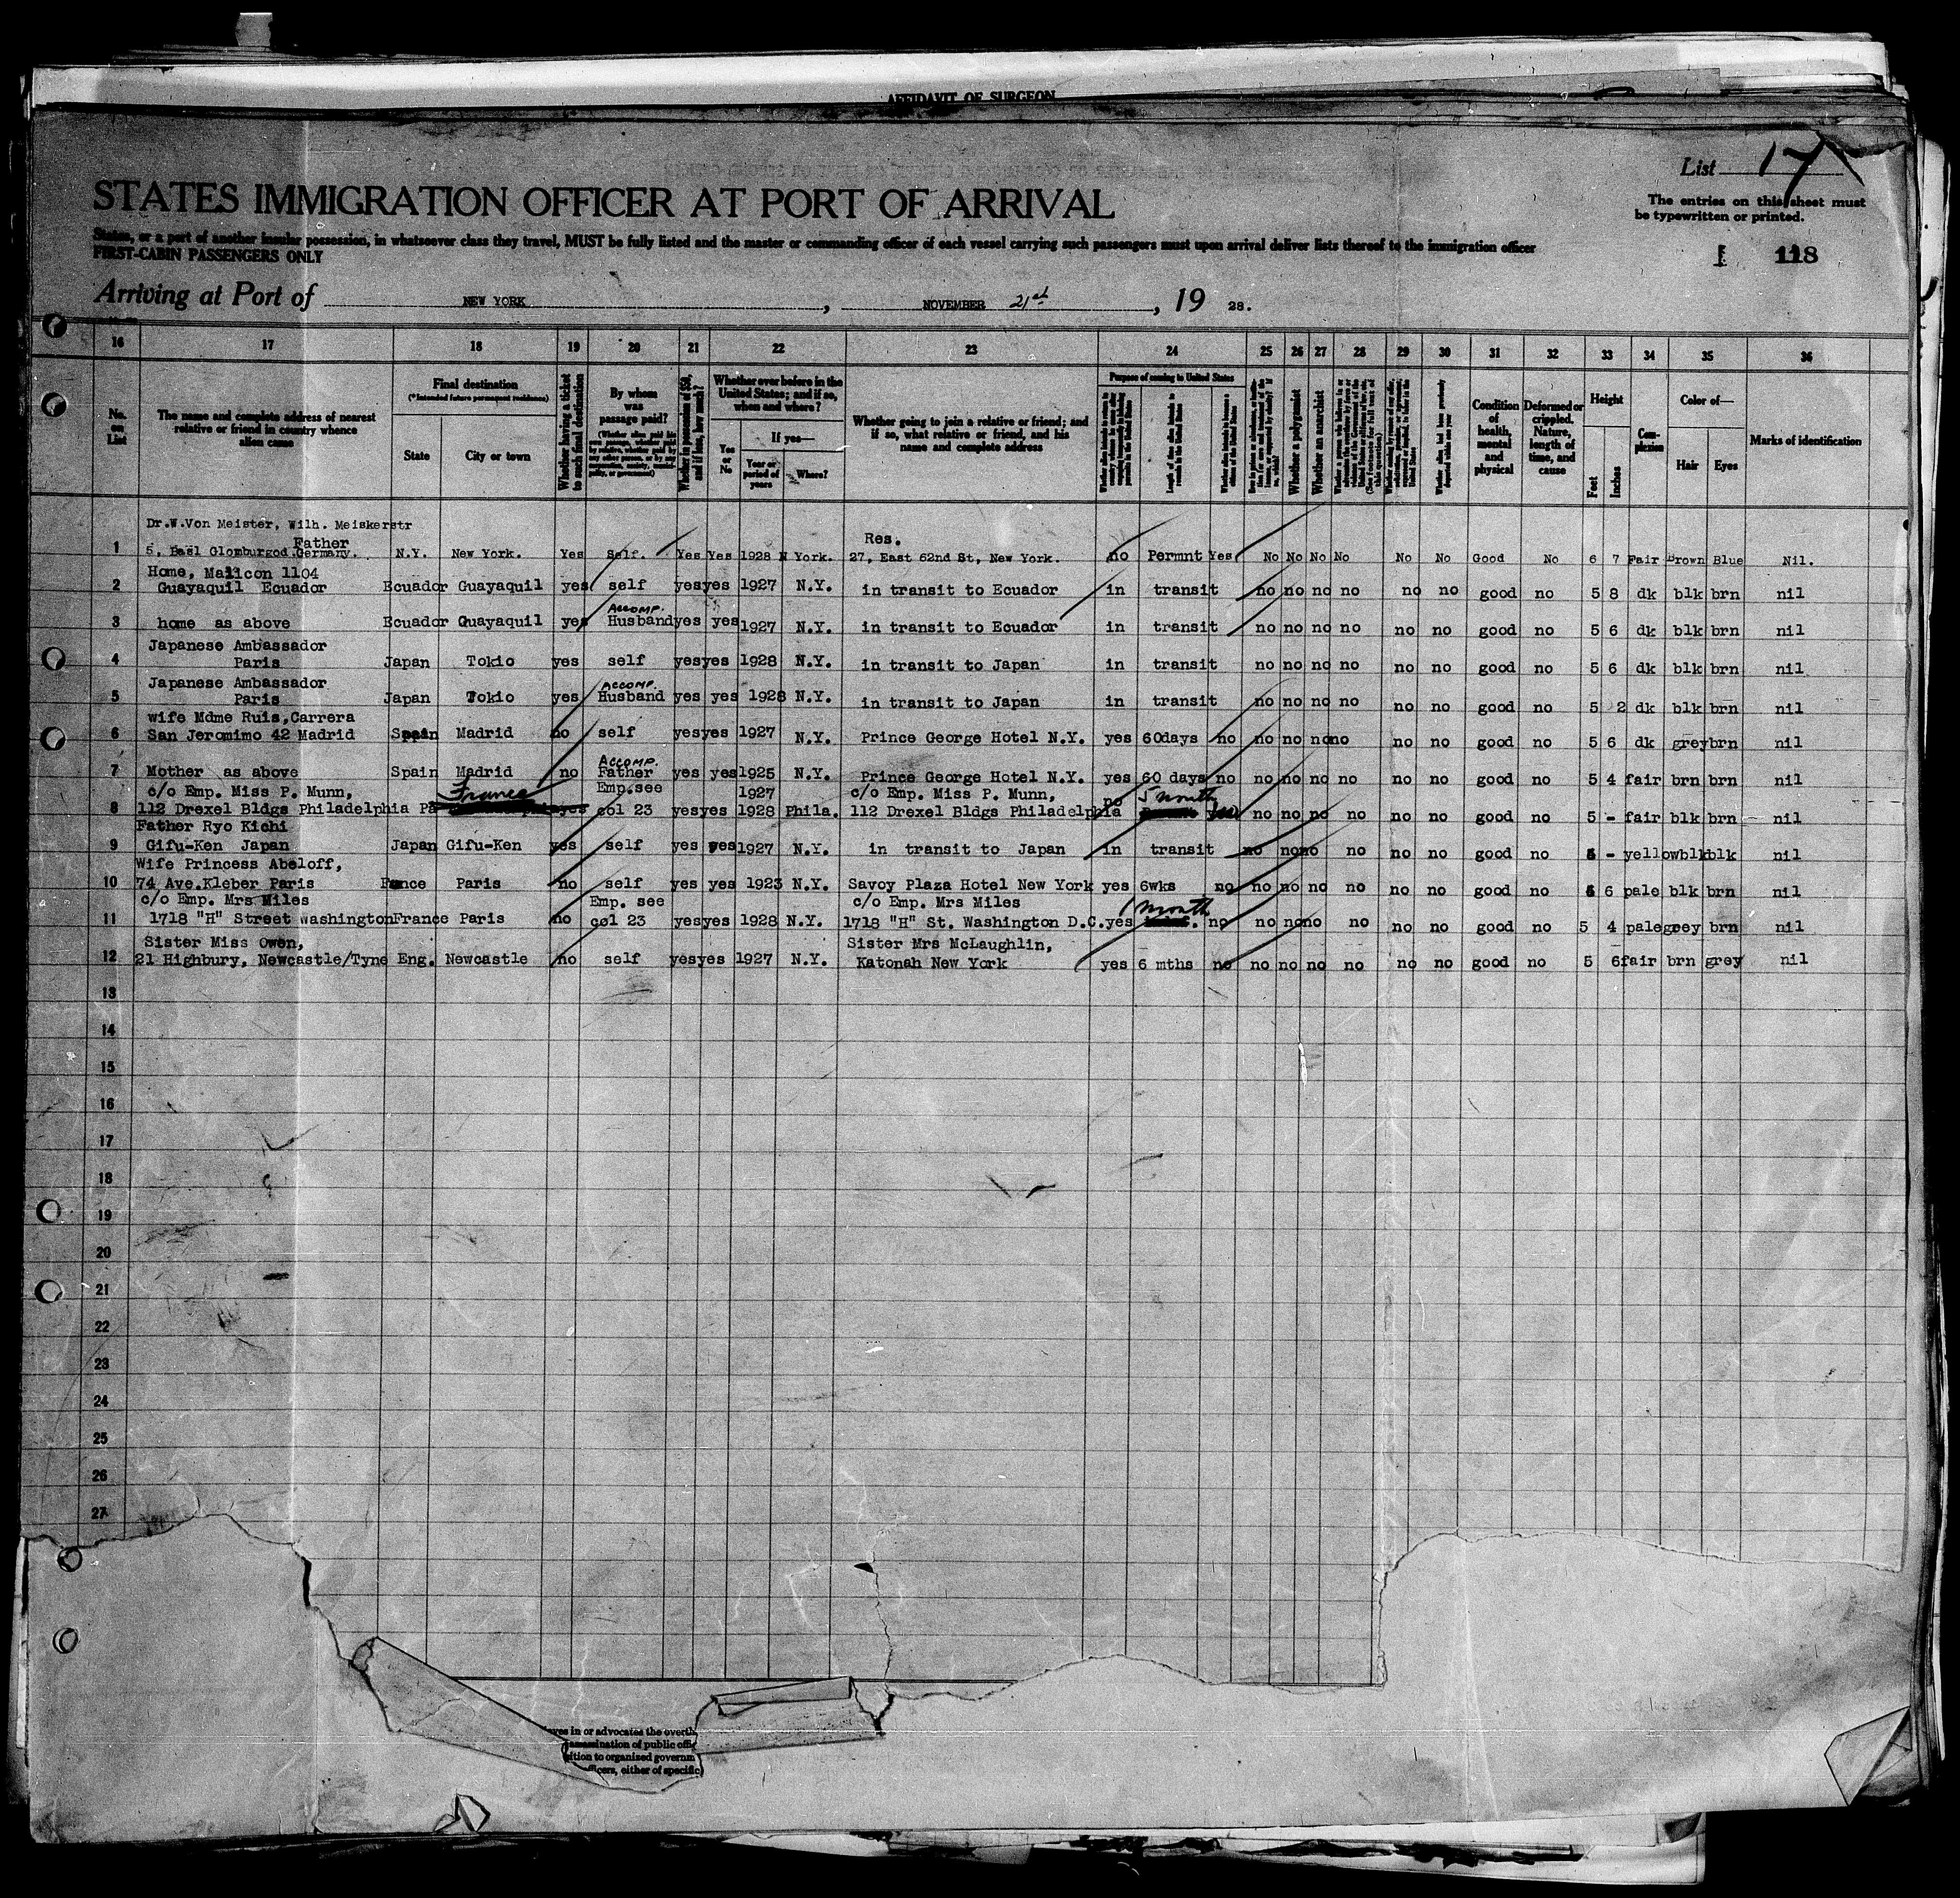 AFFIDAVIT OF SURGEON
List 17
STATES IMMIGRATION OFFICER AT PORT OF ARRIVAL
The entries on this sheet must
be typewritten or printed.
States, or a port of another insular possession, in whatsoever class they travel, MUST be fully listed and the master or commanding officer of each vessel carrying such passengers must upon arrival deliver lists thereof to the immigration officer
FIRST-CABIN PASSENGERS ONLY
118
Arriving at Port of NEW YORK, NOVEMBER 21st, 19 28.
16 17 18 19 20 21 22 23 24 25 26 27 28 29 30 31 32 33 34 35 36
No. on List
The name and complete address of nearest relative or friend in country whence alien came
Final destination
(*Intended future permanent residence)
State
City or town
Whether having a ticket to such final destination
By whom was passage paid?
Whether in possession of $50, and if less, how much?
Whether ever before in the United States; and if so, when and where?
Yes or No
If yes—
Year or period of years
Where?
Whether going to join a relative or friend; and if so, what relative or friend, and his name and complete address
Purpose of coming to United States
Length of time alien intends to remain in the United States
Whether a polygamist
Whether an anarchist
Condition of health, mental and physical
Deformed or crippled. Nature, length of time, and cause
Height
Feet
Inches
Com-plexion
Color of—
Hair
Eyes
Marks of identification
Dr.W.Von Meister, Wilh. Meiskerstr
Father Res.
1 5, Bael Glomburgod.Germany. N.Y. New York. Yes Self. Yes Yes 1928 N York. 27, East 62nd St, New York. no Permnt Yes No No No No No No Good No 6 7 Fair Brown Blue Nil.
Home, Malicon 1104
2 Guayaquil Ecuador Ecuador Guayaquil yes self yes yes 1927 N.Y. in transit to Ecuador in transit no no no no no no good no 5 8 dk blk brn nil
Accomp.
3 home as above Ecuador Guayaquil yes Husband yes yes 1927 N.Y. in transit to Ecuador in transit no no no no no no good no 5 6 dk blk brn nil
Japanese Ambassador
4 Paris Japan Tokio yes self yes yes 1928 N.Y. in transit to Japan in transit no no no no no no good no 5 6 dk blk brn nil
Japanese Ambassador Accomp.
5 Paris Japan Tokio yes Husband yes yes 1928 N.Y. in transit to Japan in transit no no no no no no good no 5 2 dk blk brn nil
wife Mdme Ruis,Carrera
6 San Jeromimo 42 Madrid Spain Madrid no self yes yes 1927 N.Y. Prince George Hotel N.Y. yes 60days no no no no no no no good no 5 6 dk grey brn nil
Accomp.
7 Mother as above Spain Madrid no Father yes yes 1925 N.Y. Prince George Hotel N.Y. yes 60 days no no no no no no no good no 5 4 fair brn brn nil
c/o Emp. Miss P. Munn, France Emp.see 1927 c/o Emp. Miss P. Munn, 5 months
8 112 Drexel Bldgs Philadelphia Pa yes col 23 yes yes 1928 Phila. 112 Drexel Bldgs Philadelphia no no no no no no no good no 5 - fair blk brn nil
Father Ryo Kichi
9 Gifu-Ken Japan Japan Gifu-Ken yes self yes yes 1927 N.Y. in transit to Japan in transit no no no no no no good no 5 - yellow blk blk nil
Wife Princess Abeloff,
10 74 Ave.Kleber Paris France Paris no self yes yes 1923 N.Y. Savoy Plaza Hotel New York yes 6wks no no no no no no no good no 5 6 pale blk brn nil
c/o Emp. Mrs Miles Emp. see c/o Emp. Mrs Miles 1 month
11 1718 "H" Street washington France Paris no col 23 yes yes 1928 N.Y. 1718 "H" St. Washington D.C. yes no no no no no no no good no 5 4 pale grey brn nil
Sister Miss Owen, Sister Mrs McLaughlin,
12 21 Highbury, Newcastle/Tyne Eng. Newcastle no self yes yes 1927 N.Y. Katonah New York yes 6 mths no no no no no no no good no 5 6 fair brn grey nil
13
14
15
16
17
18
19
20
21
22
23
24
25
26
27
in or advocates the overth
assassination of public offi
ition to organized governm
fficers, either of specific